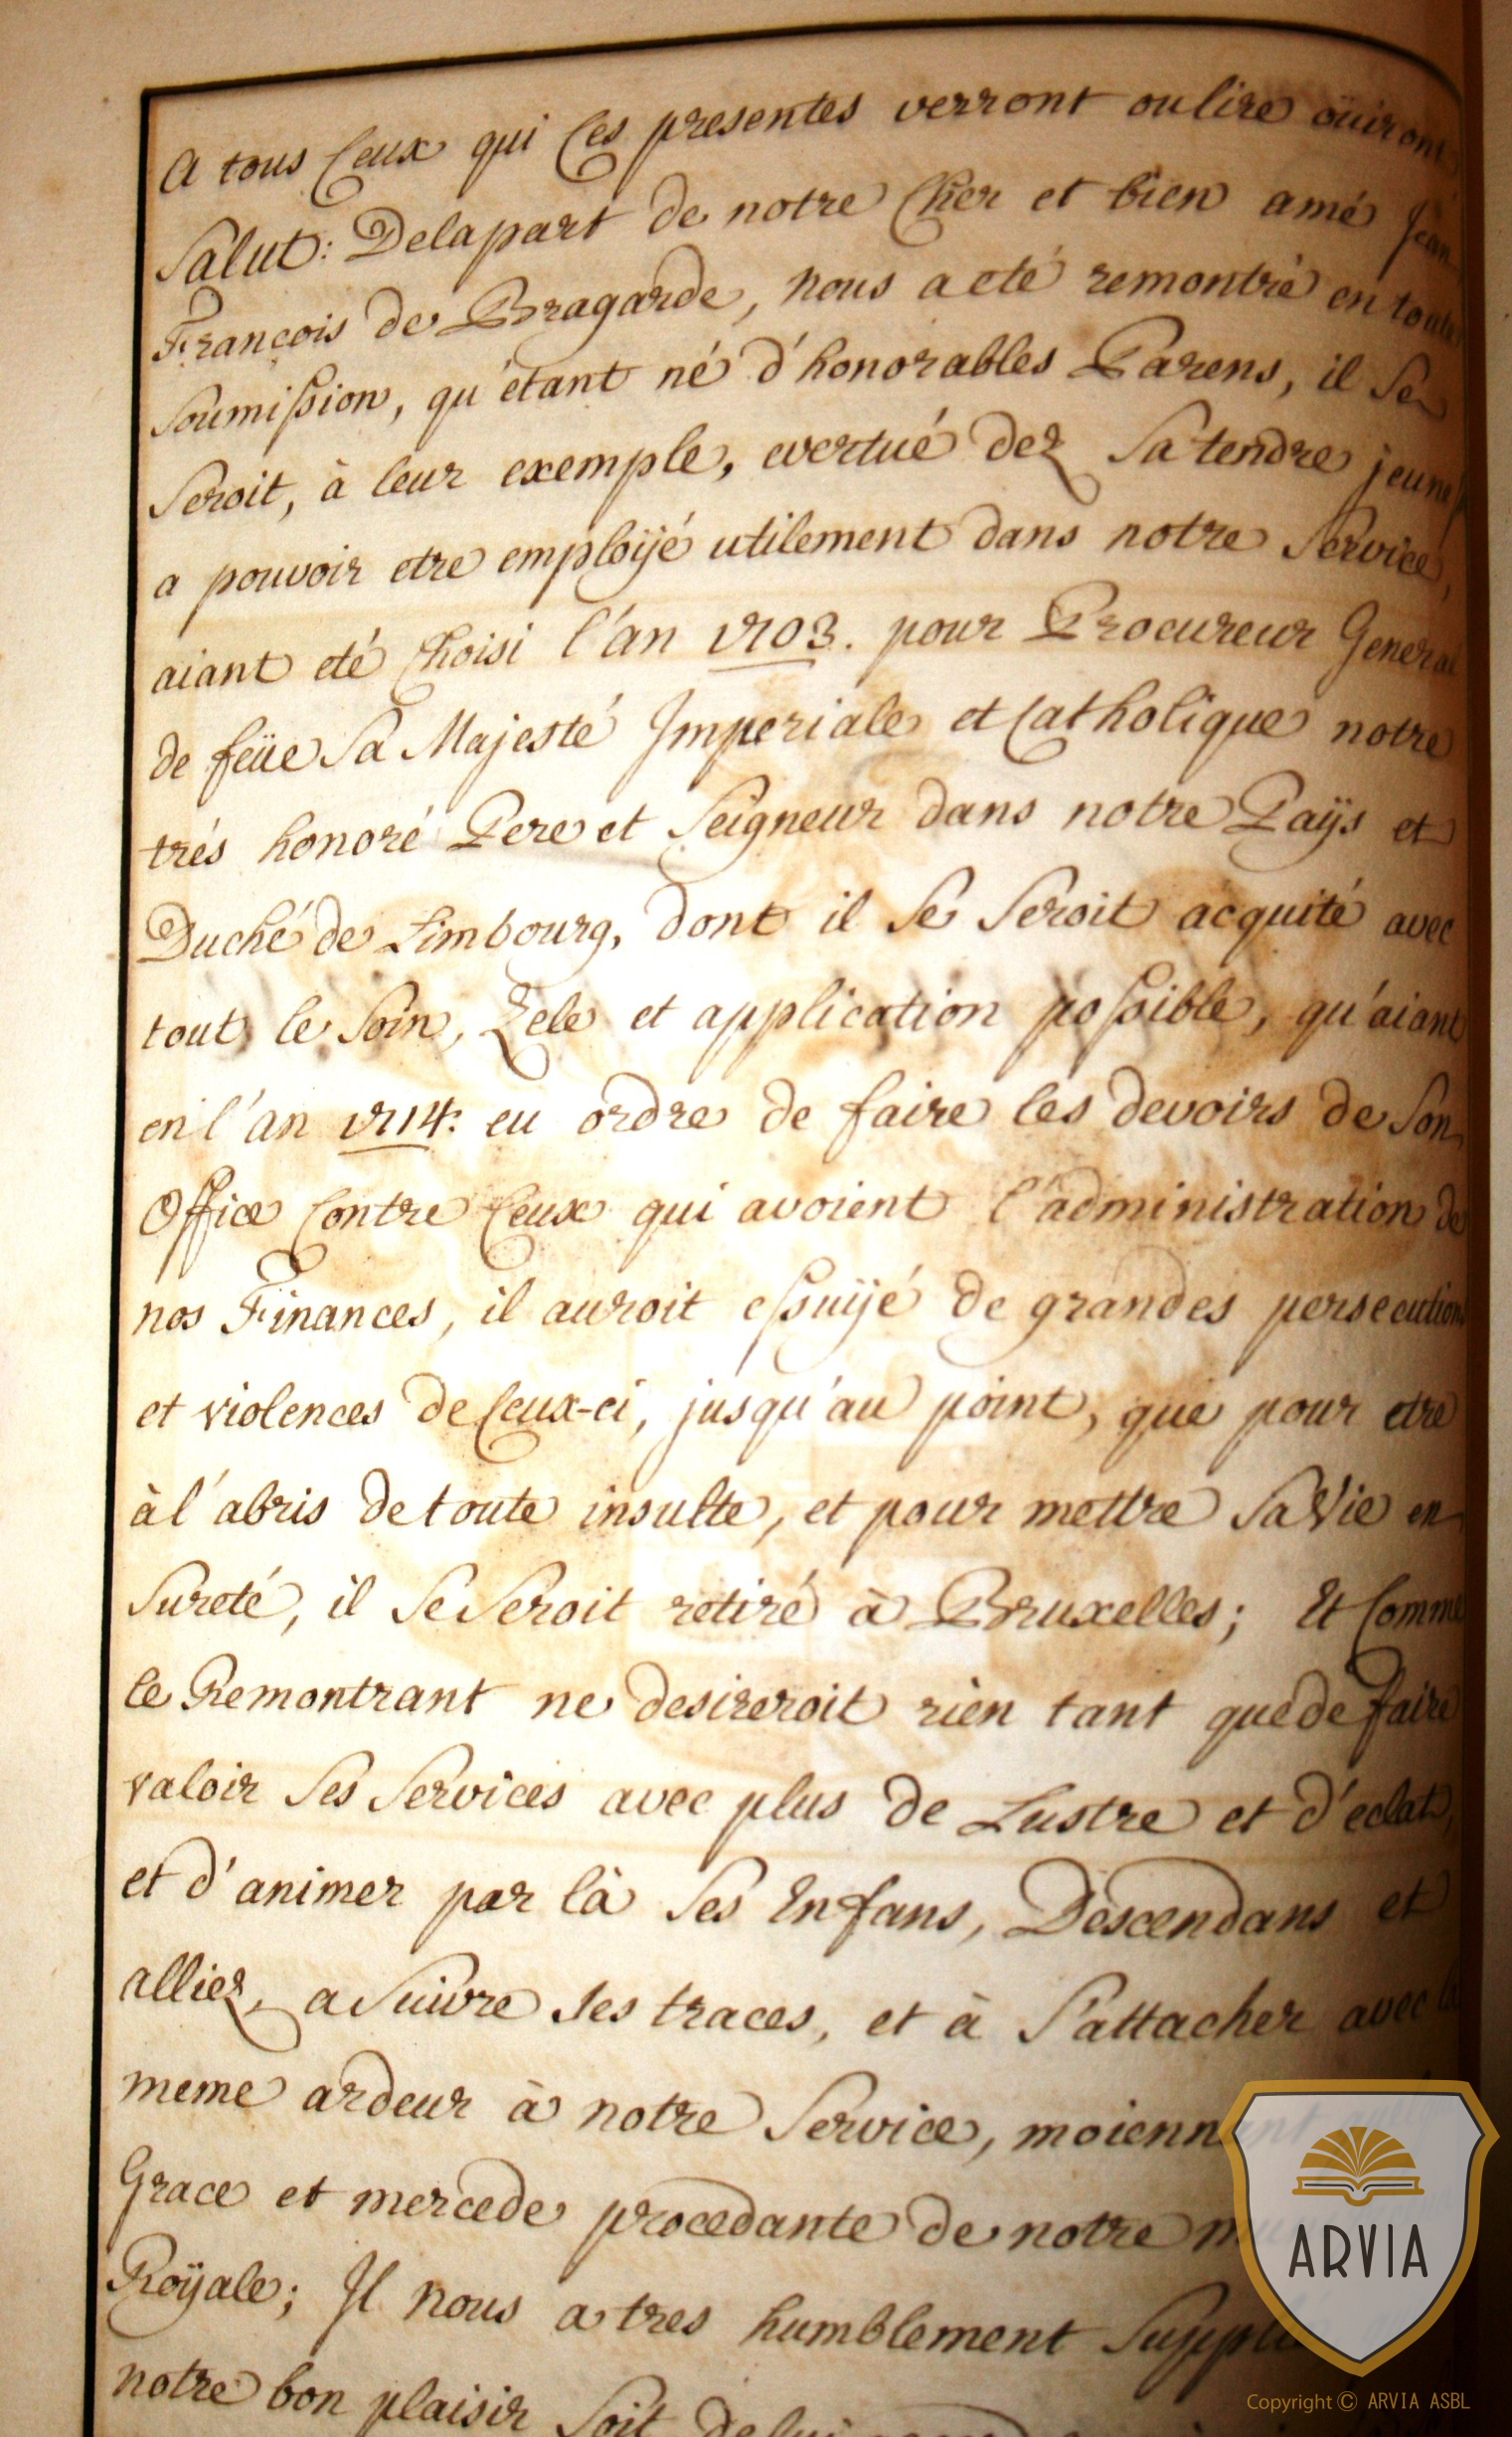 A tous Ceux qui Ces presentes verront ou lire oüiront
Salut: De la part de notre Cher et bien amé Jean
François de Bragarde, nous a eté remontré en toute
soumission, qu'étant né d'honorables Parens, il se
seroit, à leur exemple, evertué dez sa tendre jeunesse
a pouvoir etre emploÿé utilement dans notre Service,
aiant eté Choisi l'an 1703. pour Procureur General
de feüe sa Majesté Imperiale et Catholique notre
trés honoré Pere et Seigneur dans notre Païjs et
Duché de Limbourg, dont il se seroit acquité avec
tout le soin, Zele et application possible, qu'aiant
en l'an 1714: eu ordre de faire les devoirs de son
Office Contre Ceux qui avoient l'administration de
nos Finances, il auroit essuijé de grandes persecutions
et violences de Ceux-ci, jusqu'au point, que pour etre
à l'abris de toute insulte, et pour mettre sa Vie en
sureté, il se seroit retiré à Bruxelles; Et Comme
le Remontrant ne desireroit rien tant que de faire
valoir ses services avec plus de Lustre et d'eclat,
et d'animer par là ses Enfans, Descendans et
alliez, a suivre ses traces, et à s'attacher avec la
meme ardeur à notre Service, moiennant
Grace et mercede procedante de notre
Roÿale; Il nous a tres humblement
notre bon plaisir soit de lui
ARVIA
Copyright © ARVIA ASBL